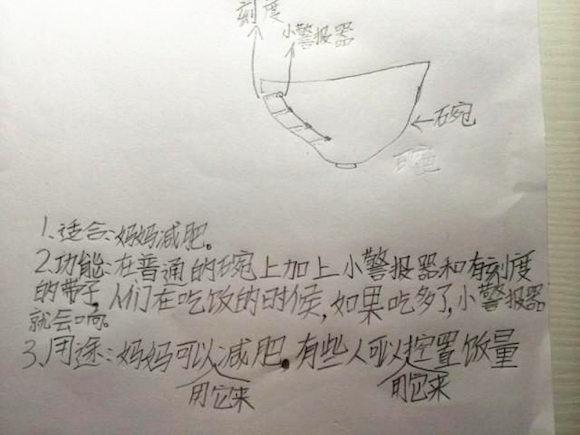 刻度
小警报器
←碗
1.适合:妈妈减肥。
2.功能:在普通的碗上加上小警报器和有刻度
的带子,人们在吃饭的时候,如果吃多了,小警报器
就会响。
3.用途:妈妈可以减肥。有些人可以控置饭量
用它来
用它来